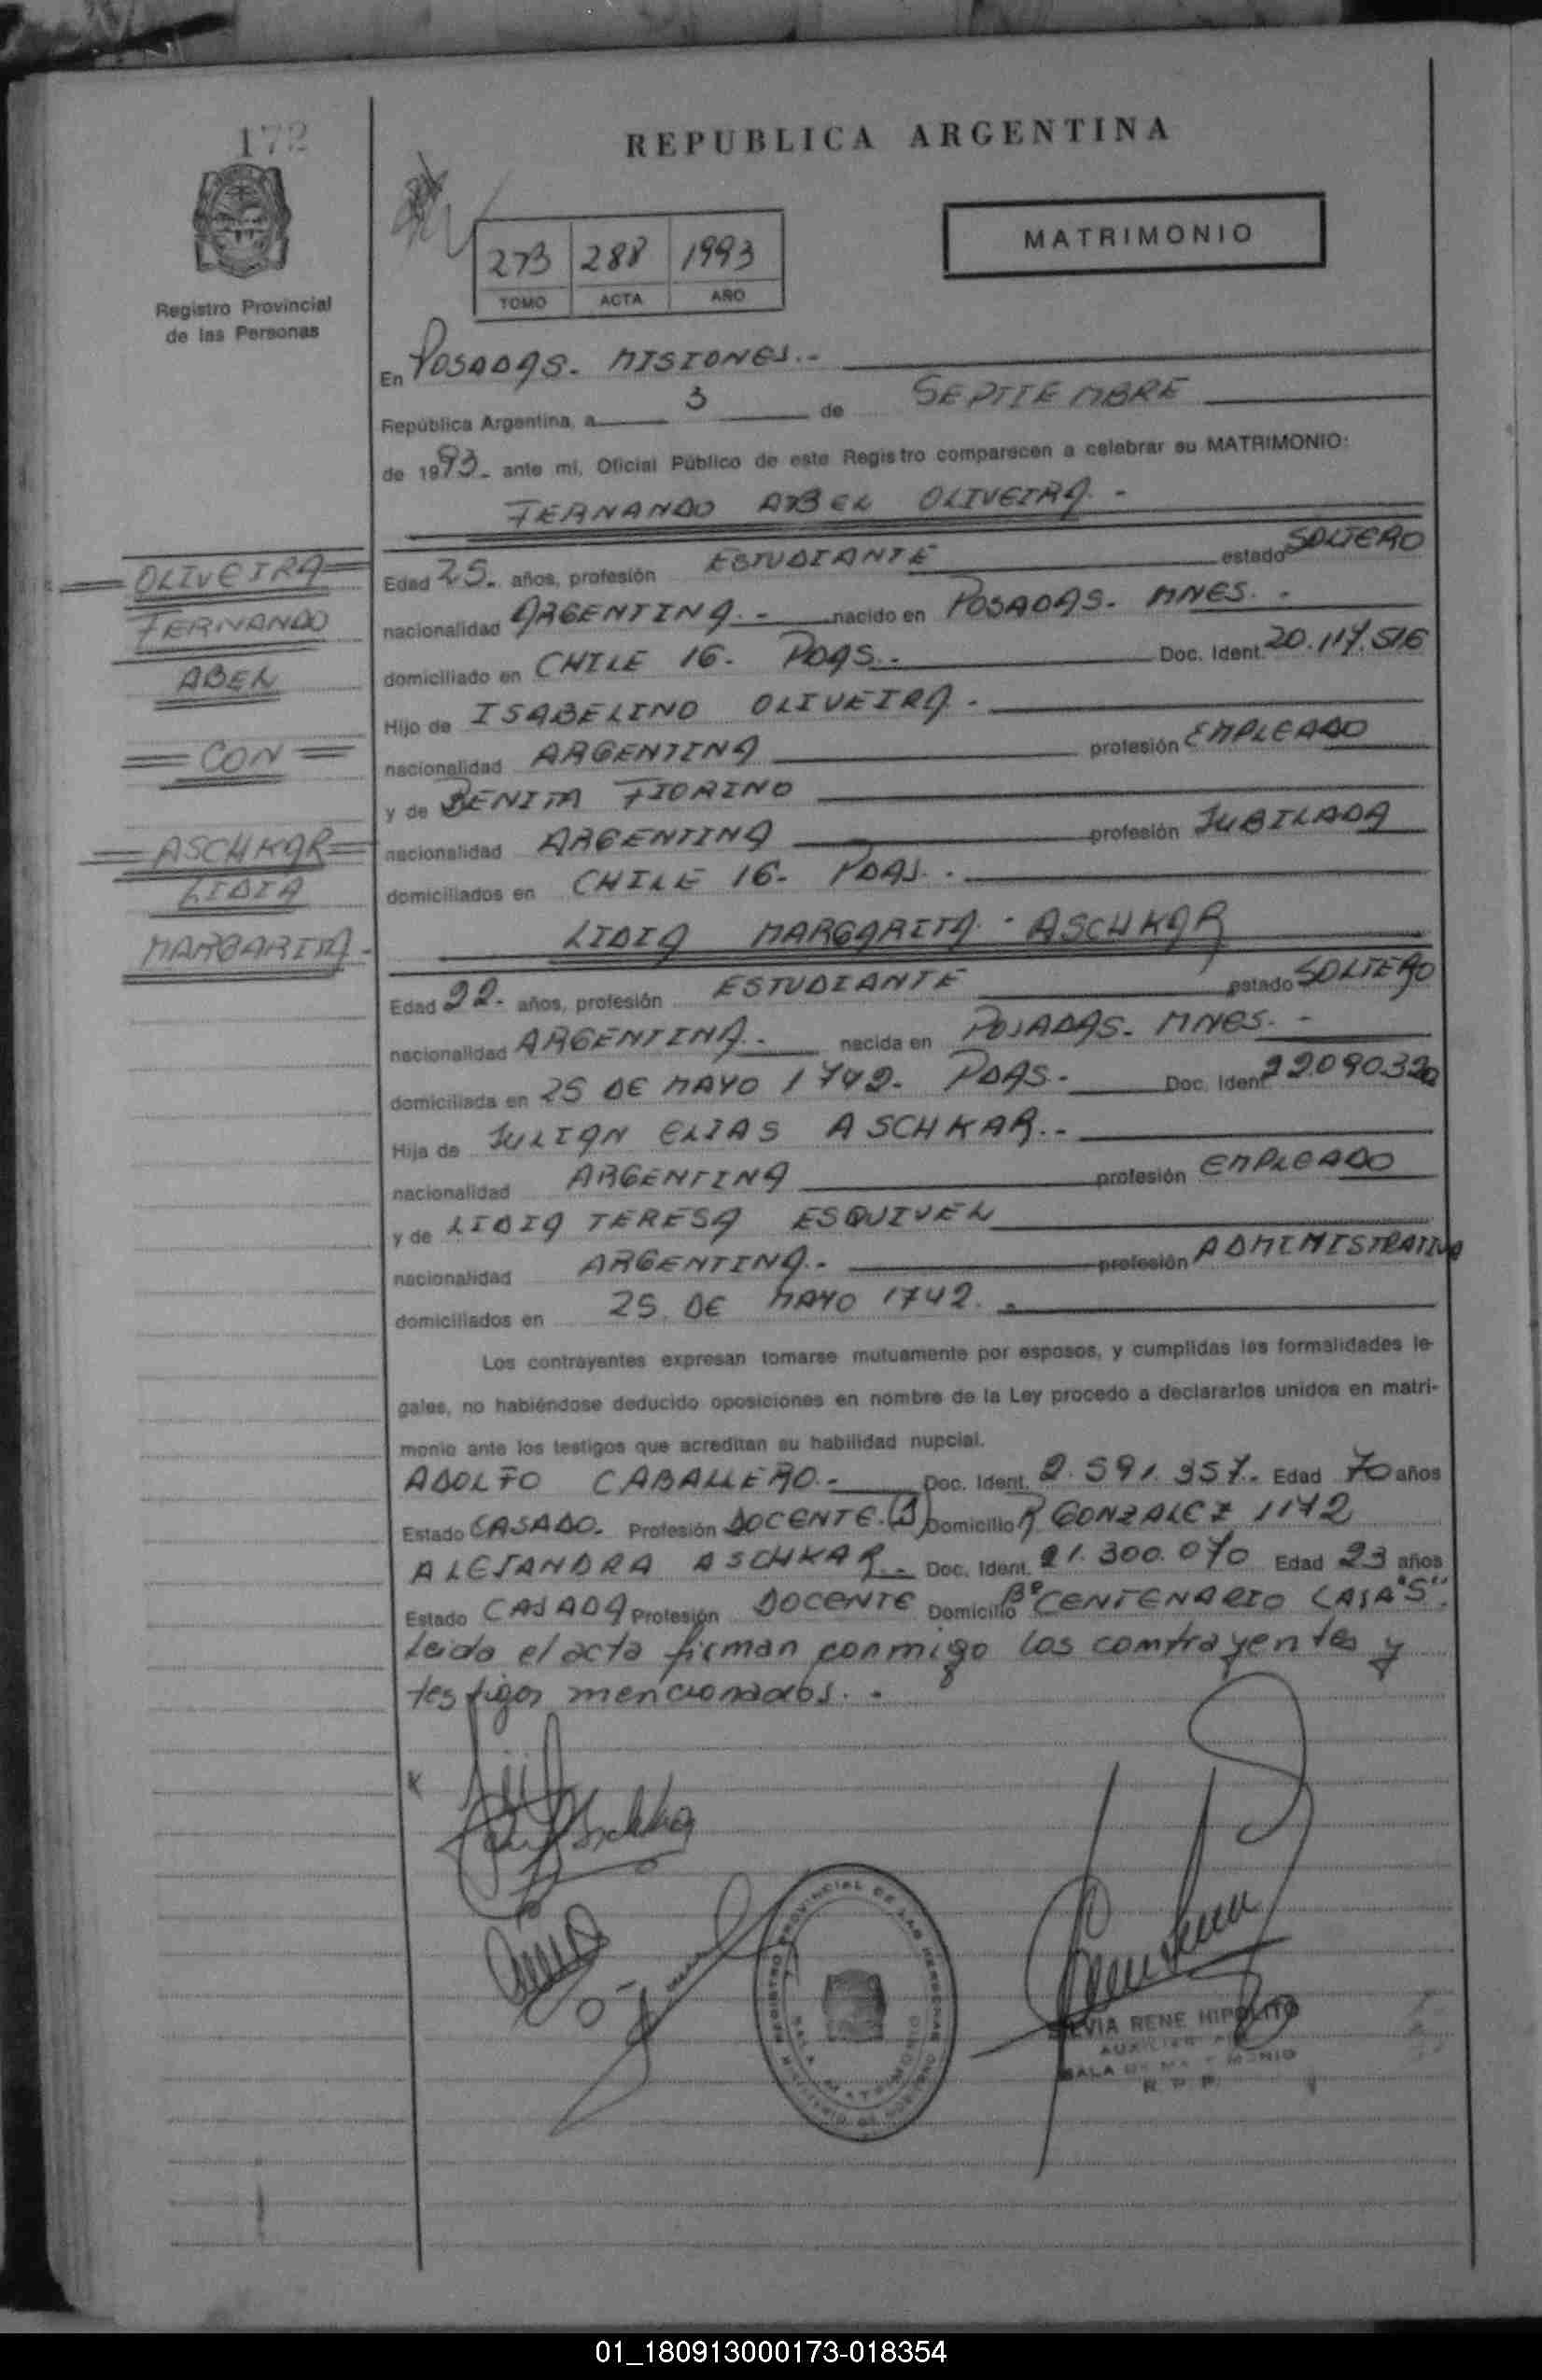 172
REPUBLICA ARGENTINA
MATRIMONIO
273 288 1993
TOMO ACTA AÑO
Registro Provincial
de las Personas
En POSADAS. MISIONES.-
República Argentina, a 3 de SEPTIEMBRE
de 1993.- ante mi, Oficial Público de este Registro comparecen a celebrar su MATRIMONIO:
FERNANDO ABEL OLIVEIRA.-
OLIVEIRA
FERNANDO
ABEL
CON
ASCHKAR
LIDIA
MARGARITA-
Edad 25. años, profesión ESTUDIANTE estado SOLTERO
nacionalidad ARGENTINA.- nacido en POSADAS. MNES.-
domiciliado en CHILE 16. PDAS.- Doc. Ident. 20.117.516
Hijo de ISABELINO OLIVEIRA.-
nacionalidad ARGENTINA profesión EMPLEADO
y de BENITA FIORINO
nacionalidad ARGENTINA profesión JUBILADA
domiciliados en CHILE 16- PDAS.-
LIDIA MARGARITA - ASCHKAR
Edad 22- años, profesión ESTUDIANTE estado SOLTERO
nacionalidad ARGENTINA.- nacida en POSADAS. MNES.-
domiciliada en 25 DE MAYO 1742. PDAS.- Doc. Ident. 22090320
Hija de JULIAN ELIAS ASCHKAR.-
nacionalidad ARGENTINA profesión EMPLEADO
y de LIDIA TERESA ESQUIVEL
nacionalidad ARGENTINA.- profesión ADMINISTRATIVA
domiciliados en 25 DE MAYO 1742.-
Los contrayentes expresan tomarse mutuamente por esposos, y cumplidas las formalidades le-
gales, no habiéndose deducido oposiciones en nombre de la Ley procedo a declararlos unidos en matri-
monio ante los testigos que acreditan su habilidad nupcial.
ADOLFO CABALLERO.- Doc. Ident. 2.591.357.- Edad 70 años
Estado CASADO. Profesión DOCENTE.(J) Domicilio R GONZALEZ 1142
ALEJANDRA ASCHKAR.- Doc. Ident. 21.300.070 Edad 23 años
Estado CASADA Profesión DOCENTE Domicilio Bº CENTENARIO CASA "S".
Leida el acta firman conmigo los contrayentes y
testigos mencionados.-
REGISTRO PROVINCIAL DE LAS PERSONAS
SALA MATRIMONIO
MINISTERIO DE GOBIERNO
SILVIA RENE HIPOLITO
SALA DE MATRIMONIO
R P P
01_180913000173-018354